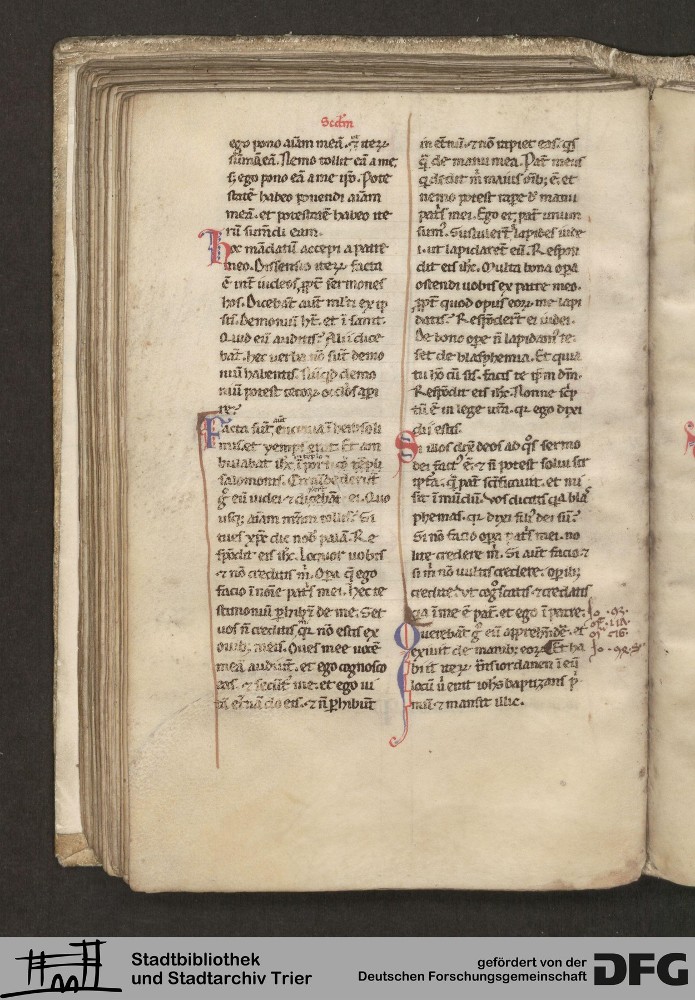 Scdm
ego pono aīam meā. ⁊ iterꝝ
sumā eā. Nemo tollit eā a me,
s; ego pono eā a me ipō. Pote
statē habeo ponendi aīam
meā. et potestatē habeo ite
rū sum̄di eam.
Hoc mādatū accepi a patre
meo. Dissensio iterꝝ facta
ē int̄ iudeos, ꝓpt̄ sermones
hos. Dicebāt aut̄ ml̄ti ex ip
sis. Demoniū hꝫ. et ī sanit.
Quid eū auditis? Alii dice
bāt. hec verba nō sūt demo
niū habentis. demo
niū potest cecoꝝ oc̄los api
re?
Facta sūt aut̄ encenia ī hierosoli
mis. et yemps erat. Et am
bulabat ihc̄ ī porticu tēpli
salomonis. Circūdederūt
g̊ eū iudei ⁊ dicebāt ei. Quo
usq; aīam nr̄am tollis? Si
tu es xp̄c dic nob̄ palā. Re
spōdit eis ihc̄. Loquor uobis
⁊ nō creditis m̄. Opa q̄ ego
facio ī noīe patr̄s mei. hec te
stimoniū ꝑhibt̄ de me. Set
uos n̄ creditis, qr̄ nō estis ex
ouib; meis. Oues mee uocē
meā audiūt. et ego cognosco
eas. ⁊ secūt̄ me. et ego ui
tā et̄nā do eis. ⁊ n̄ ꝑhibūt
in et̄nū. ⁊ nō rapiet eas. qs̄
q̄ de manu mea. Pat̄ meus
q̄ dedit m̄ maius oīb; ē. et
nemo potest rape de manu
patr̄s mei. Ego et pat̄ unum
sum̄. Sustulerūt lapides iude
i. ut lapidaret̄ eū. Respon
dit eis ihc̄. Multa bona opa
ostendi uobis ex patre meo.
ꝓpt̄ quod opus eoꝝ me lapi
datis? Respōdert̄ ei iudei.
De bono ope n̄ lapidam̄ te.
set de blasphemia. Et quia
tu hō cū sis. facis te ip̄m dm̄.
Respōdit eis ihc̄. Nonne scp̄
tū ē in lege ur̄a. qr ego dixi
dii estis.
Si illos dix̄ deos ad qs̄ sermo
dei fact̄ ē. ⁊ n̄ potest solui sc̄
ptā. q̄ pat̄ sc̄ificauit. et mi
sit ī mūdū. vos dicitis qa bla
phemas. qr dixi fili dei sū?
Si nō facio opa patr̄s mei. no
lite credere m̄. Si aut̄ facio ⁊
si m̄ nō uultis credere. opib;
credite. Vt cog̊scatis ⁊ credatis
qa ī me ē pat̄. et ego ī patre.
Querebāt g̊ eū app̄reh̄ndē̄. et
exiuit de manib; eoꝝ. Et ha
biit iterꝝ tn̄s iordanen ī eū
locū ū erat ioh̄s baptizans p̄
mū ⁊ mansit illic.
Stadtbibliothek
und Stadtarchiv Trier
gefördert von der
Deutschen Forschungsgemeinschaft
DFG